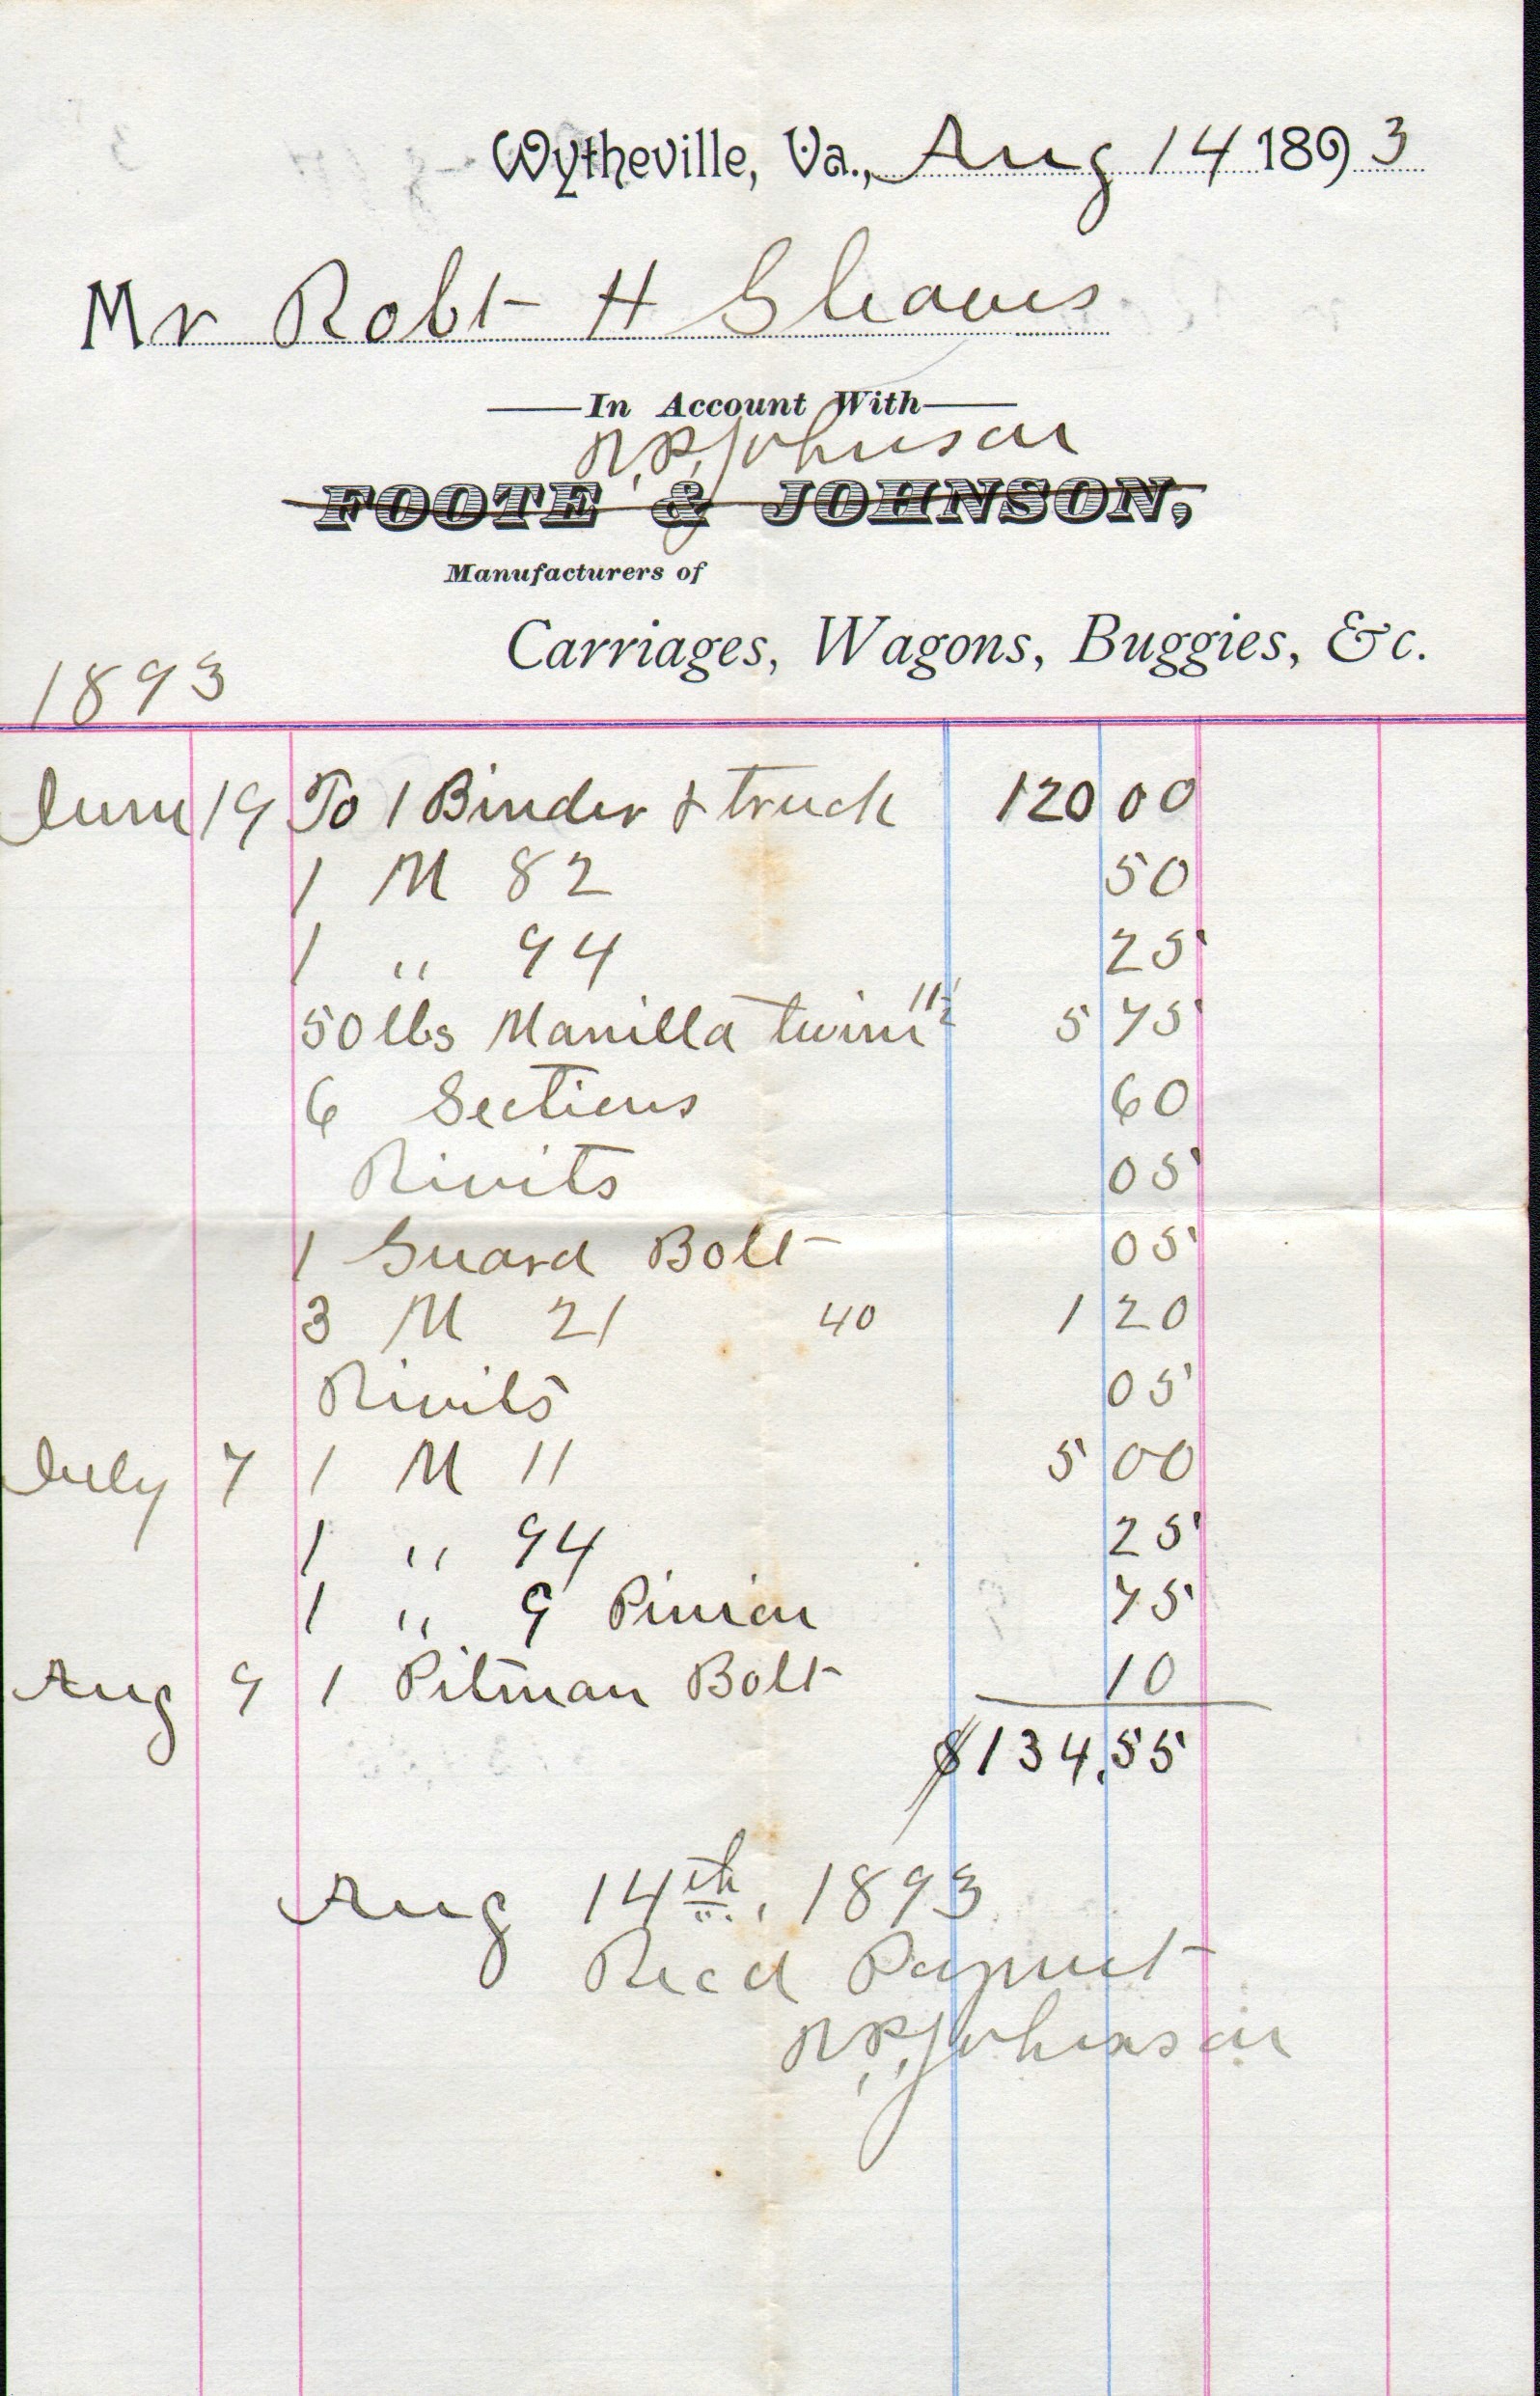 Wytheville, Va., Aug 14 1893
Mr Robt H Gleaves
In Account With
R.P. Johnson
FOOTE & JOHNSON,
Manufacturers of
Carriages, Wagons, Buggies, &c.
1893
June 19 To 1 Binder & truck 120 00
1 M 82 50
1 " 94 25
50 lbs Manilla twine 11½ 5 75
6 Sections 60
Rivits 05
1 Guard Bolt 05
3 M 21 40 1 20
Rivits 05
July 7 1 M 11 5 00
1 " 94 25
1 " 9 Pinion 75
Aug 9 1 Pitman Bolt 10
$134.55
Aug 14th, 1893
Recd Paymet
R.P. Johnson